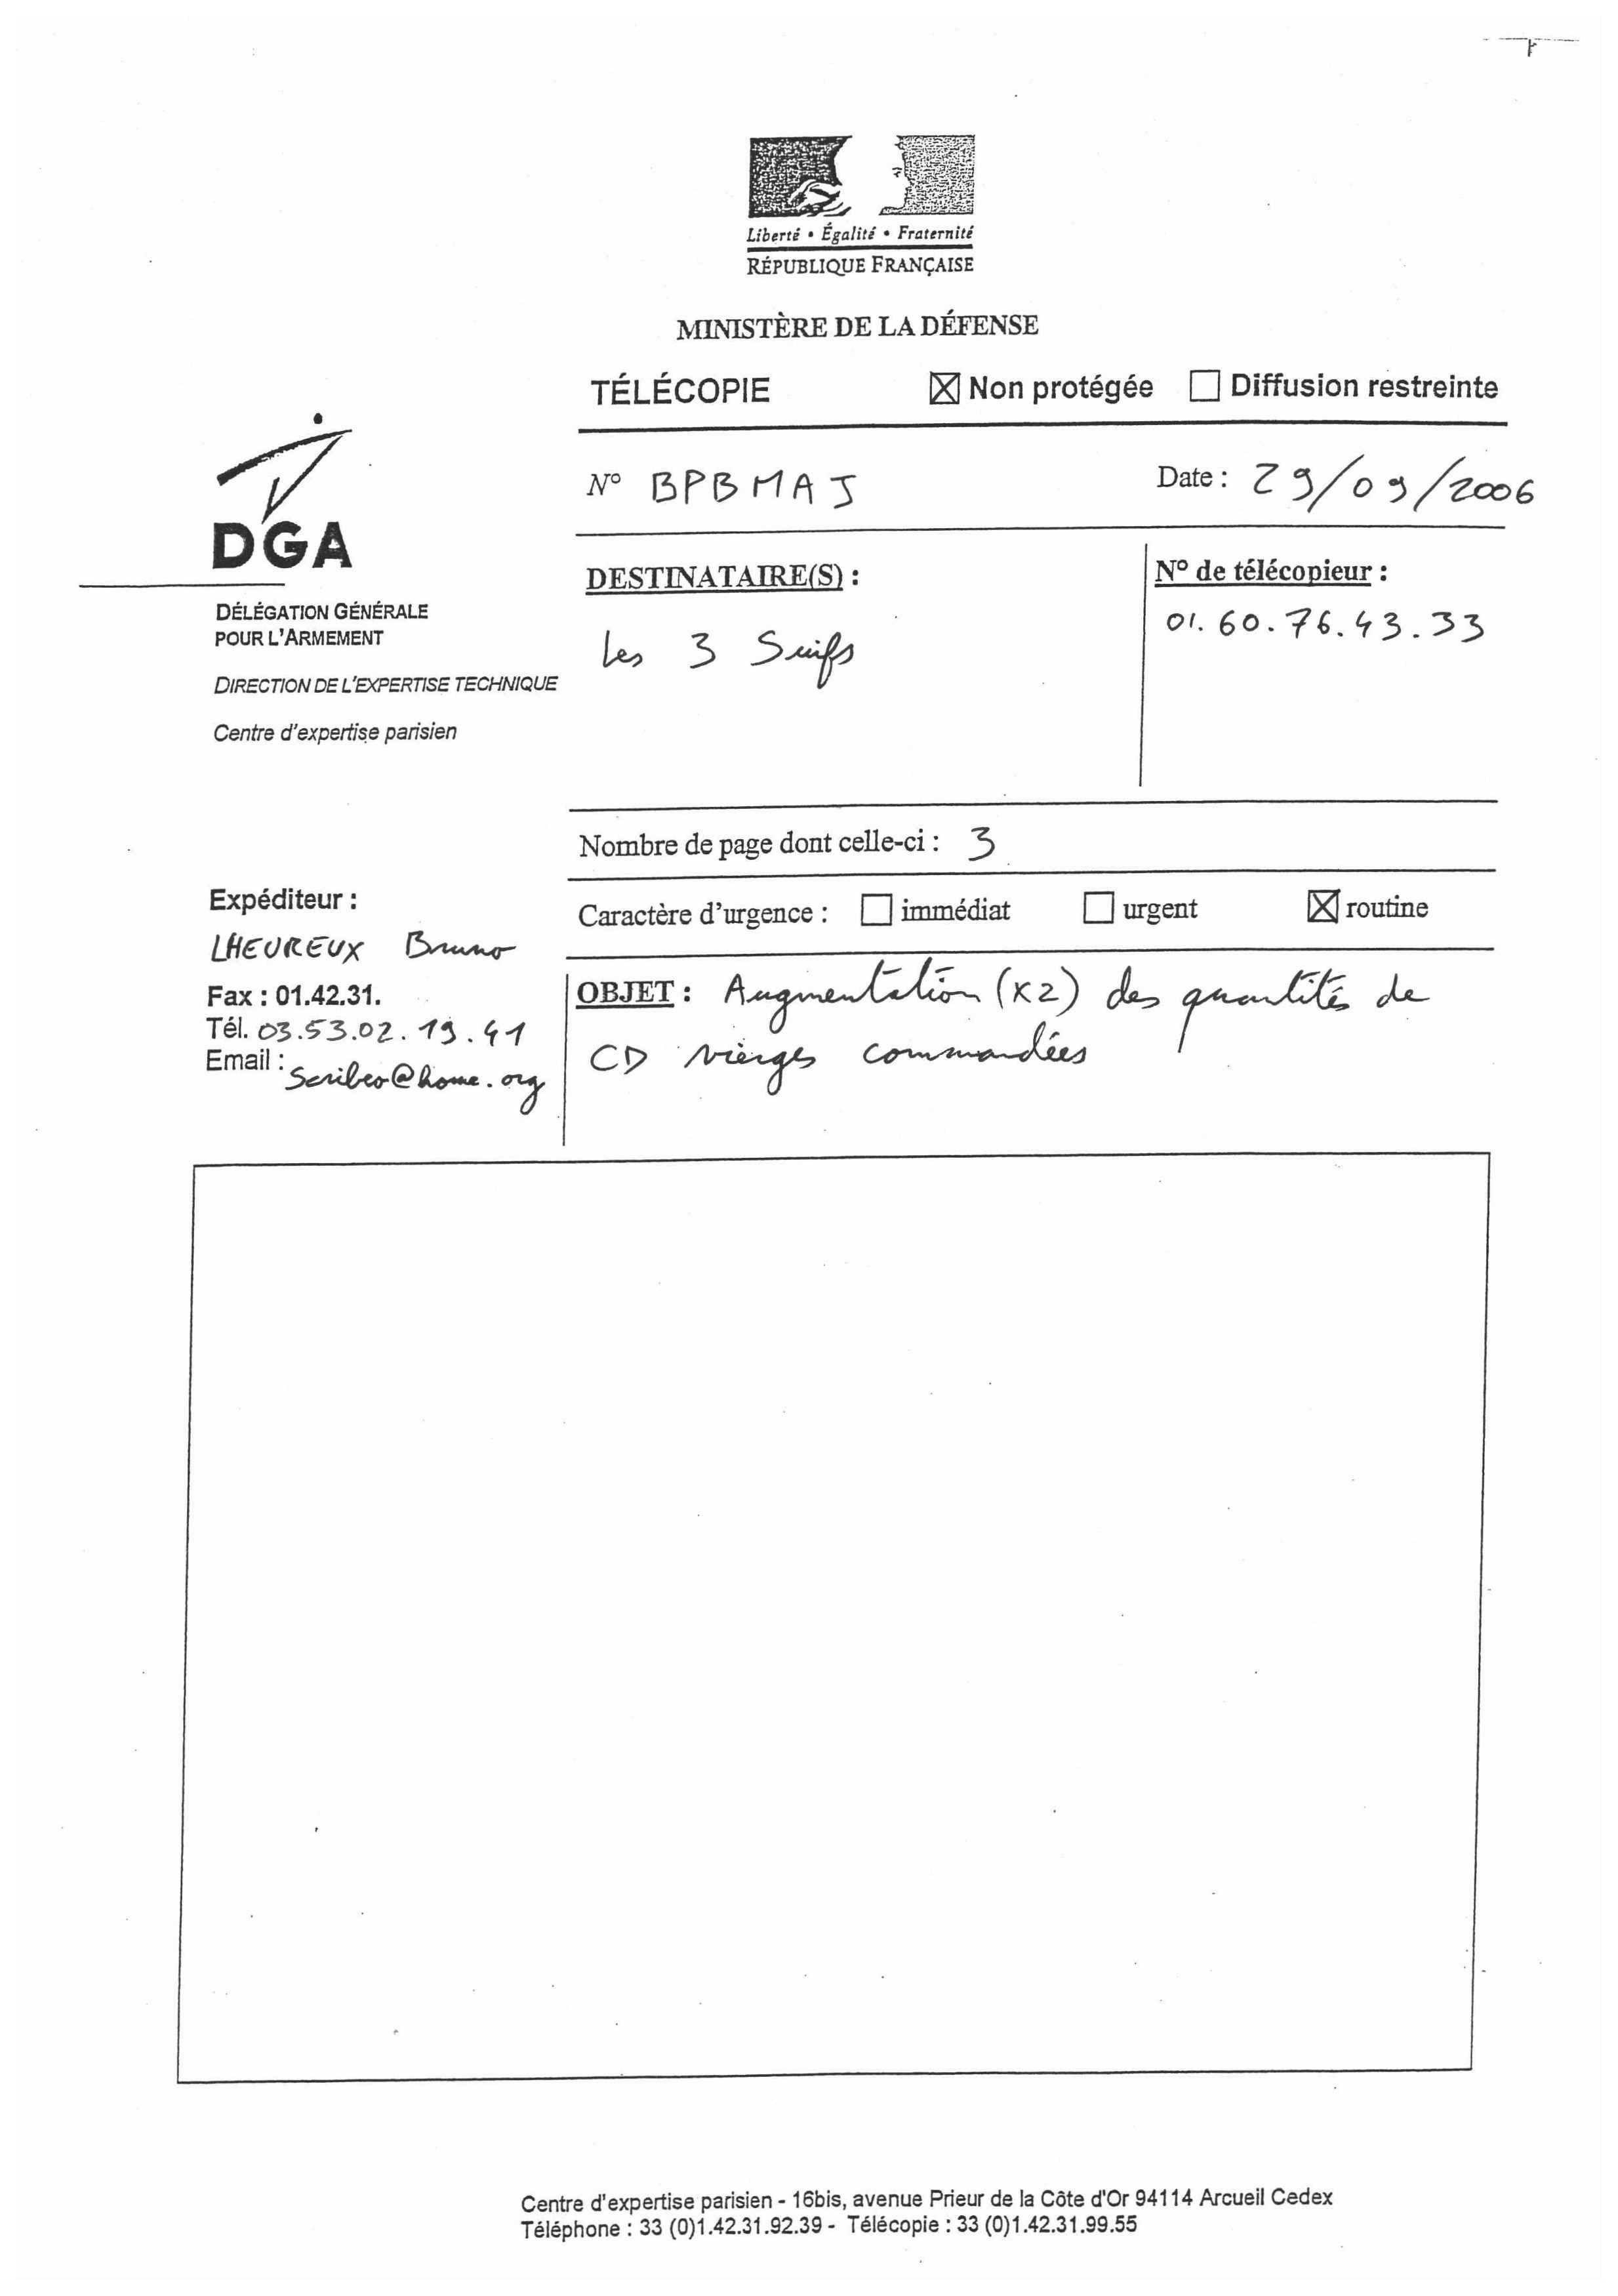 Liberté • Égalité • Fraternité
RÉPUBLIQUE FRANÇAISE
MINISTÈRE DE LA DÉFENSE
TÉLÉCOPIE ☒ Non protégée ☐ Diffusion restreinte
N° BPBMAJ Date : 29/09/2006
DGA
DÉLÉGATION GÉNÉRALE
POUR L'ARMEMENT
DIRECTION DE L'EXPERTISE TECHNIQUE
Centre d'expertise parisien
DESTINATAIRE(S) :
Les 3 Suifs
N° de télécopieur :
01.60.76.43.33
Nombre de page dont celle-ci : 3
Caractère d'urgence : ☐ immédiat ☐ urgent ☒ routine
Expéditeur :
LHEUREUX Bruno
Fax : 01.42.31.
Tél. 03.53.02.19.41
Email : Scribeo@home.org
OBJET : Augmentation (x2) des quantités de
CD vierges commandées
Centre d'expertise parisien - 16bis, avenue Prieur de la Côte d'Or 94114 Arcueil Cedex
Téléphone : 33 (0)1.42.31.92.39 - Télécopie : 33 (0)1.42.31.99.55